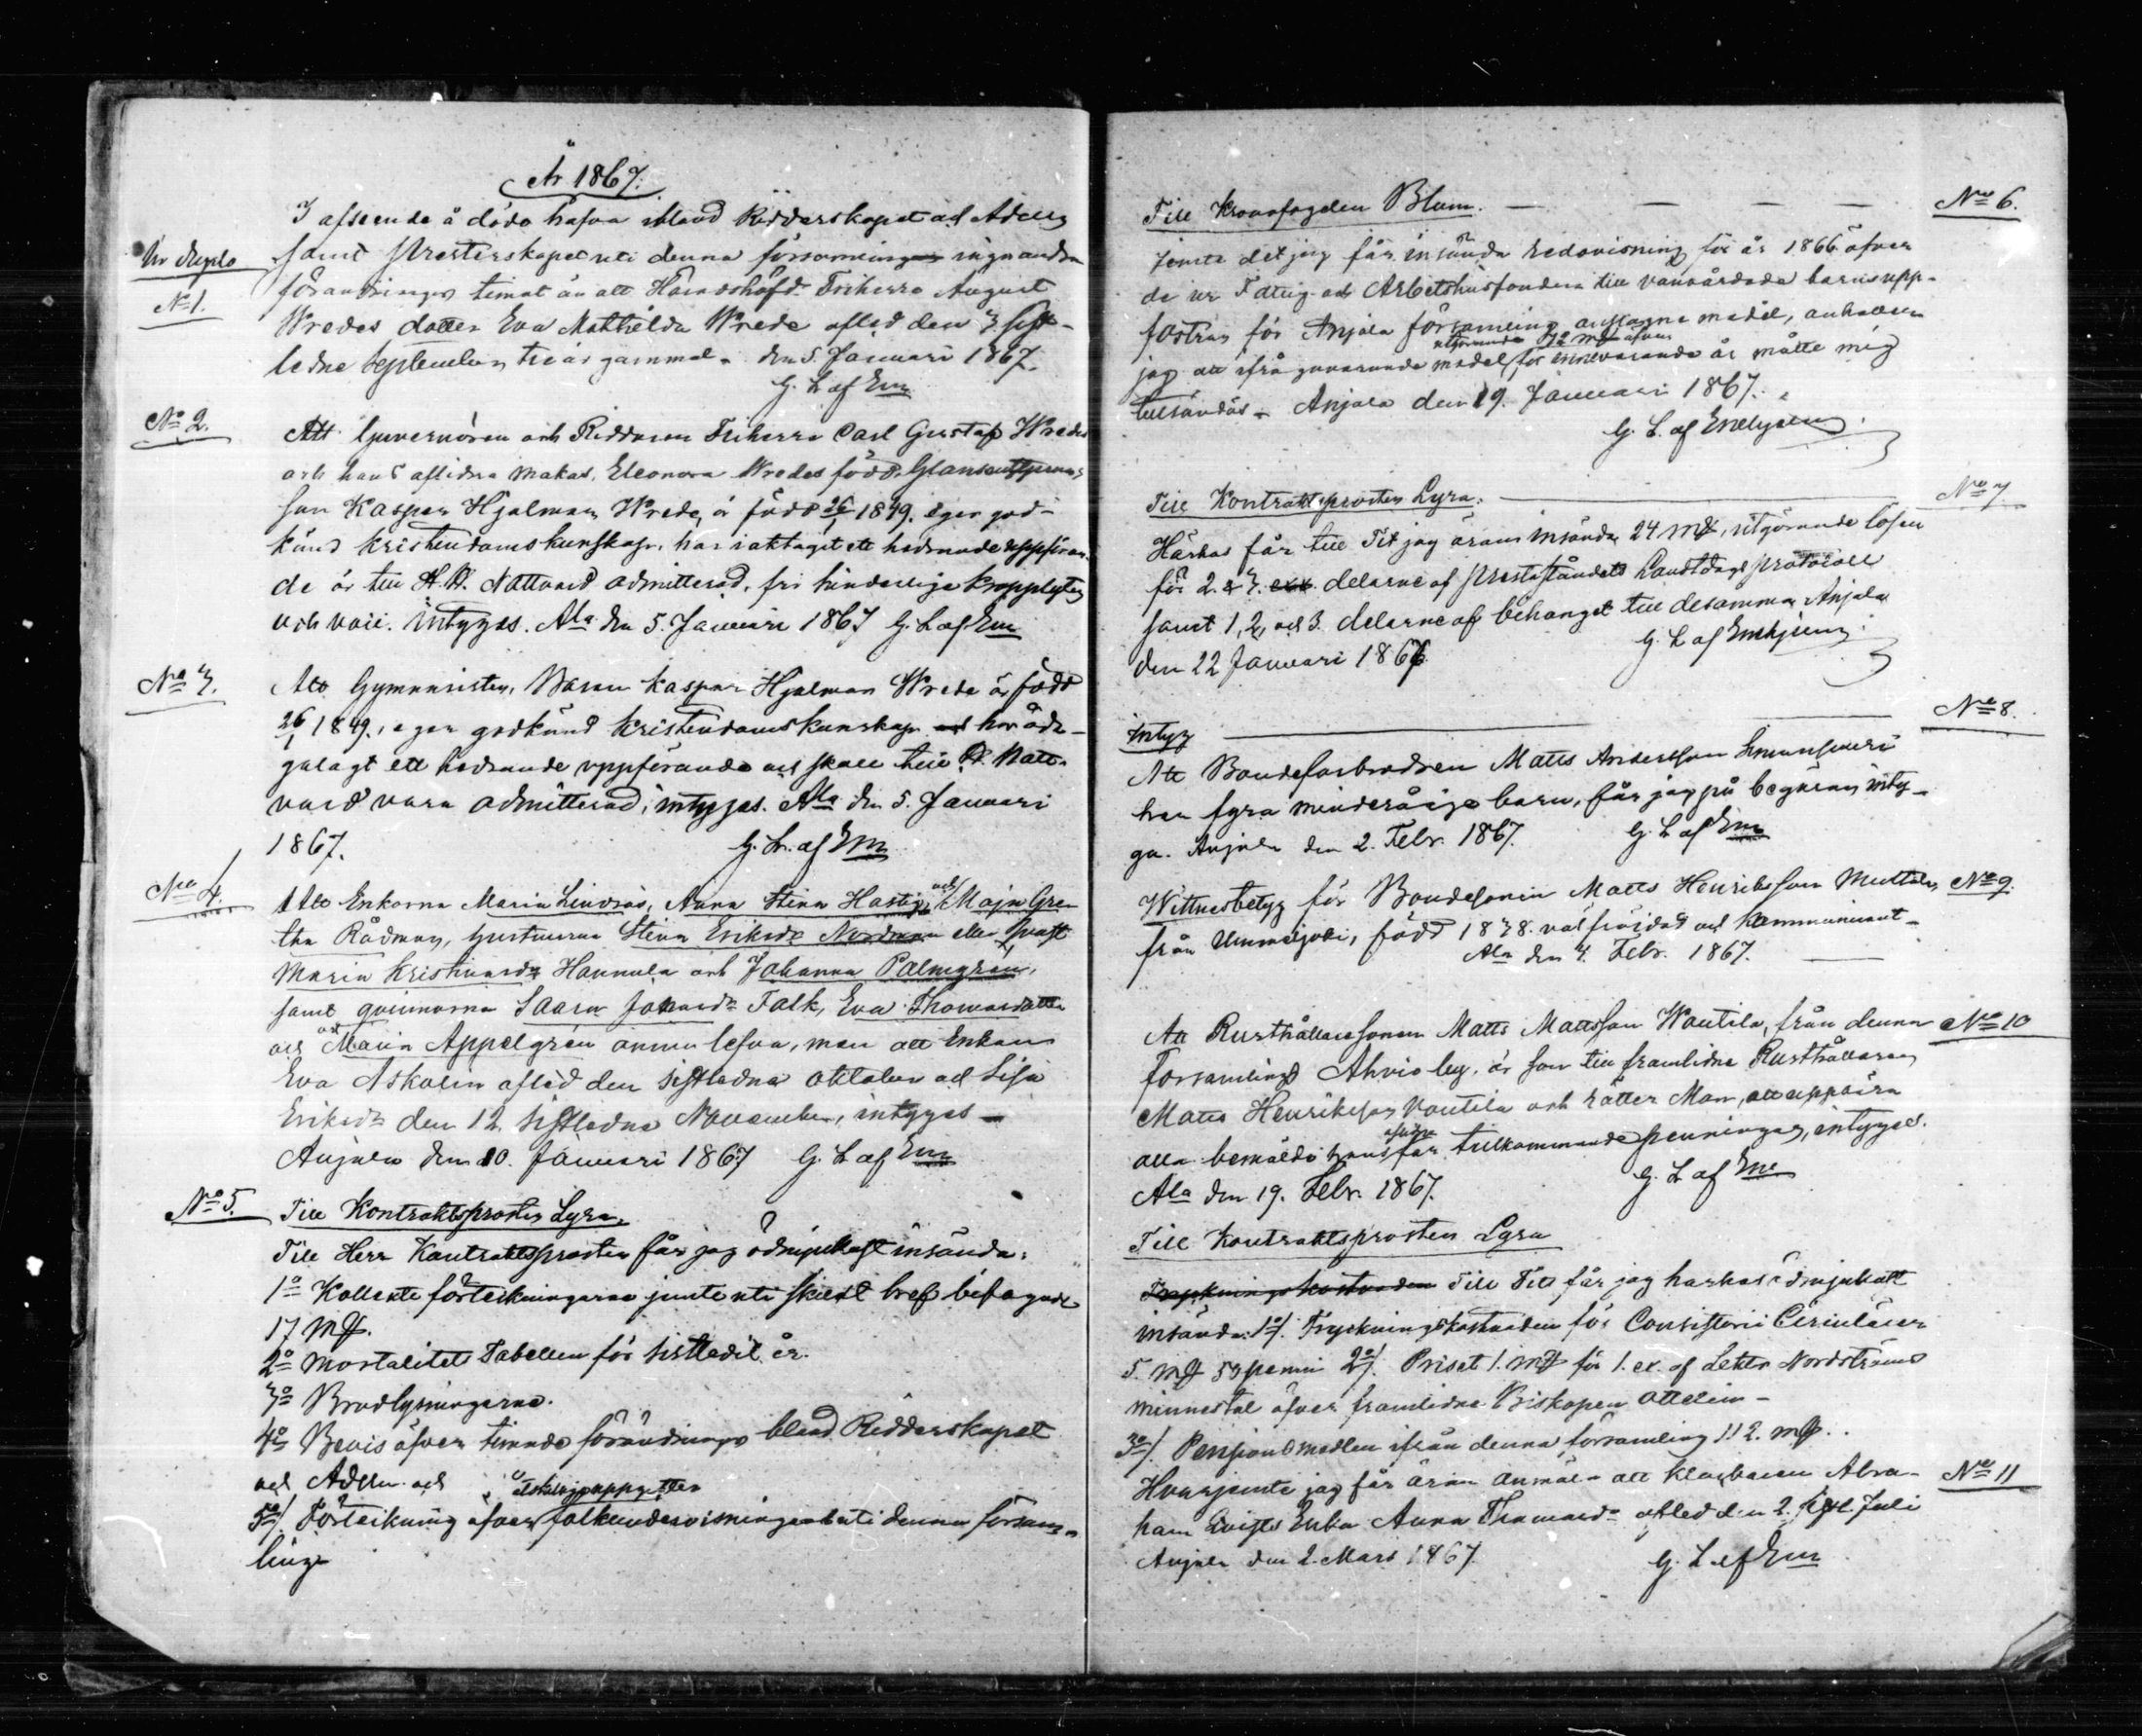 År 1867.
I afseende å döda hafva ibland Ridderskapet och Adeln
In duplo
samt Presterskapet uti denna församling inga andra
No 1.
förändringar timat än att Häradshöfd. Friherre August
Wredes dotter Eva Mathilda Wrede afled den 3 sist-
ledne September, tre år gammal. den 5. Januari 1867.
G. L af Em
No 2.
Att Guvernören och Riddaren Friherre Carl Gustaf Wredes
och hans aflidna makas, Eleonora Wredes född
son Kasper Hjalmar Wrede, är född 26/1 1849. eger god-
känd kristendomskunskap, har iakttagit ett hedrande uppföran-
de är till H. H. Nattvard admitterad, fri hinderliga kropplyten
och vaic. intygas. Ala den 5. Januari 1867 G. L af Em
No 3.
Att Gymnasisten, Baron Kasper Hjalmar Wrede är född
26/1 1849., eger godkänd kristendomskunskap har åda-
galagt ett hedrande uppförande och skall till H. Natt-
vard vara admitterad, intygas. Ala den 5. Januari
1867. G. L. af Em
No 4.
Att Enkorna Maria Lindros, Anna Stina Hastig, och Maja Gre-
tha Rådman, hustrurna Stina Eriksdr Nordman eller Qvast
Maria Kristinasdr Hannula och Johanna Palmgren,
samt qvinnorna Saara Johansdr Falk, Eva Thomasdotter
och Maria Appelgrén ännu lefva, men att Enkan
Eva Askolin afled den sistledne Oktober och Lisa
Eriksdr den 12. sistledne November, intygas -
Anjala den 10. Januari 1867 G. L af Em
No 5. Till Kontraktsprosten Lyra.
Till Herr Kontraktsprosten får jag ödmjukast insända:
1o Kollekt förteckningarne jemte uti skildt bref bifogade
17 mk.
2o Mortalitets Tabellen för sistledit år.
3o Brudlysningarna.
4o Bevis öfver timade förändringar bland Ridderskapet
och Adeln och
5o/. Förteckning öfver folkundervisningen uti denna församm-
linge
Till Kronofogden Blum. — — — — No 6.
Jemte det jag får insända redovisning för år 1866 öfver
de ur Fattig- och Arbetshusfonden till vanvårdade barns upp-
fostran för Anjala församling anslagne medel, anhåller
utgörande 72 mk öfver
jag att ifrågavarande medel för innevarande år måtte mig
tillsändas - Anjala den 19. Januari 1867.
G. L. af Enehjelm.
Till Kontraktsprosten Lyra. — No 7.
Härhos får till Tit jag äran insända 24 mk, utgörande lösen
för 2. & 3. delarne af Presteståndets Landtdags protocoll
samt 1, 2, och 3. delarne af bihanget till desamma Anjala
den 22 Januari 1867 G. L af Enehjelm.
No 8.
Intyg
Att Bondesonbrodren Matts Andersson
har fyra minderåriga barn, får jag på begäran inty-
ga. Anjala den 2. Febr. 1867. G. L af Em
Wittnesbetyg för Bondesonen Matts Henriksson Muttala, No 9.
från Ummeljoki, född 1838. välfräjdad och kommunicant-
Ala den 4. Febr. 1867.
Att Rusthållaresonen Matts Mattsson Wantila, från denna No 10
församlings Ahvio by, är son till framlidne Rusthållaren
Matts Henriksson Wantila och rätter Man, att uppbära
alla bemälde hans aflidne far tillkommande penningar, intygas.
Ala den 19. Febr. 1867. G. L af Em
Till Kontraktsprosten Lyra
Tryckningskostnaden Till Tit får jag härhos ödmjukast
insända: 1o/. Tryckningskostnaden för Consistorii Cirkulärer
5. mk 50 penni 2o/. Priset 1. mk för 1. ex. af Lektr Nordströms
minnestal öfver framlidne Biskopen Ottelin -
3o/. Pensionsmedlen ifrån denna församling 112. mk.
Hvarjemte jag får äran anmäla att Klockaren Abra- No 11
ham Qvists Enka Anna Thomasdr afled den 2. sistl. Juli
Anjala den 2. Mars 1867. G. L af Em